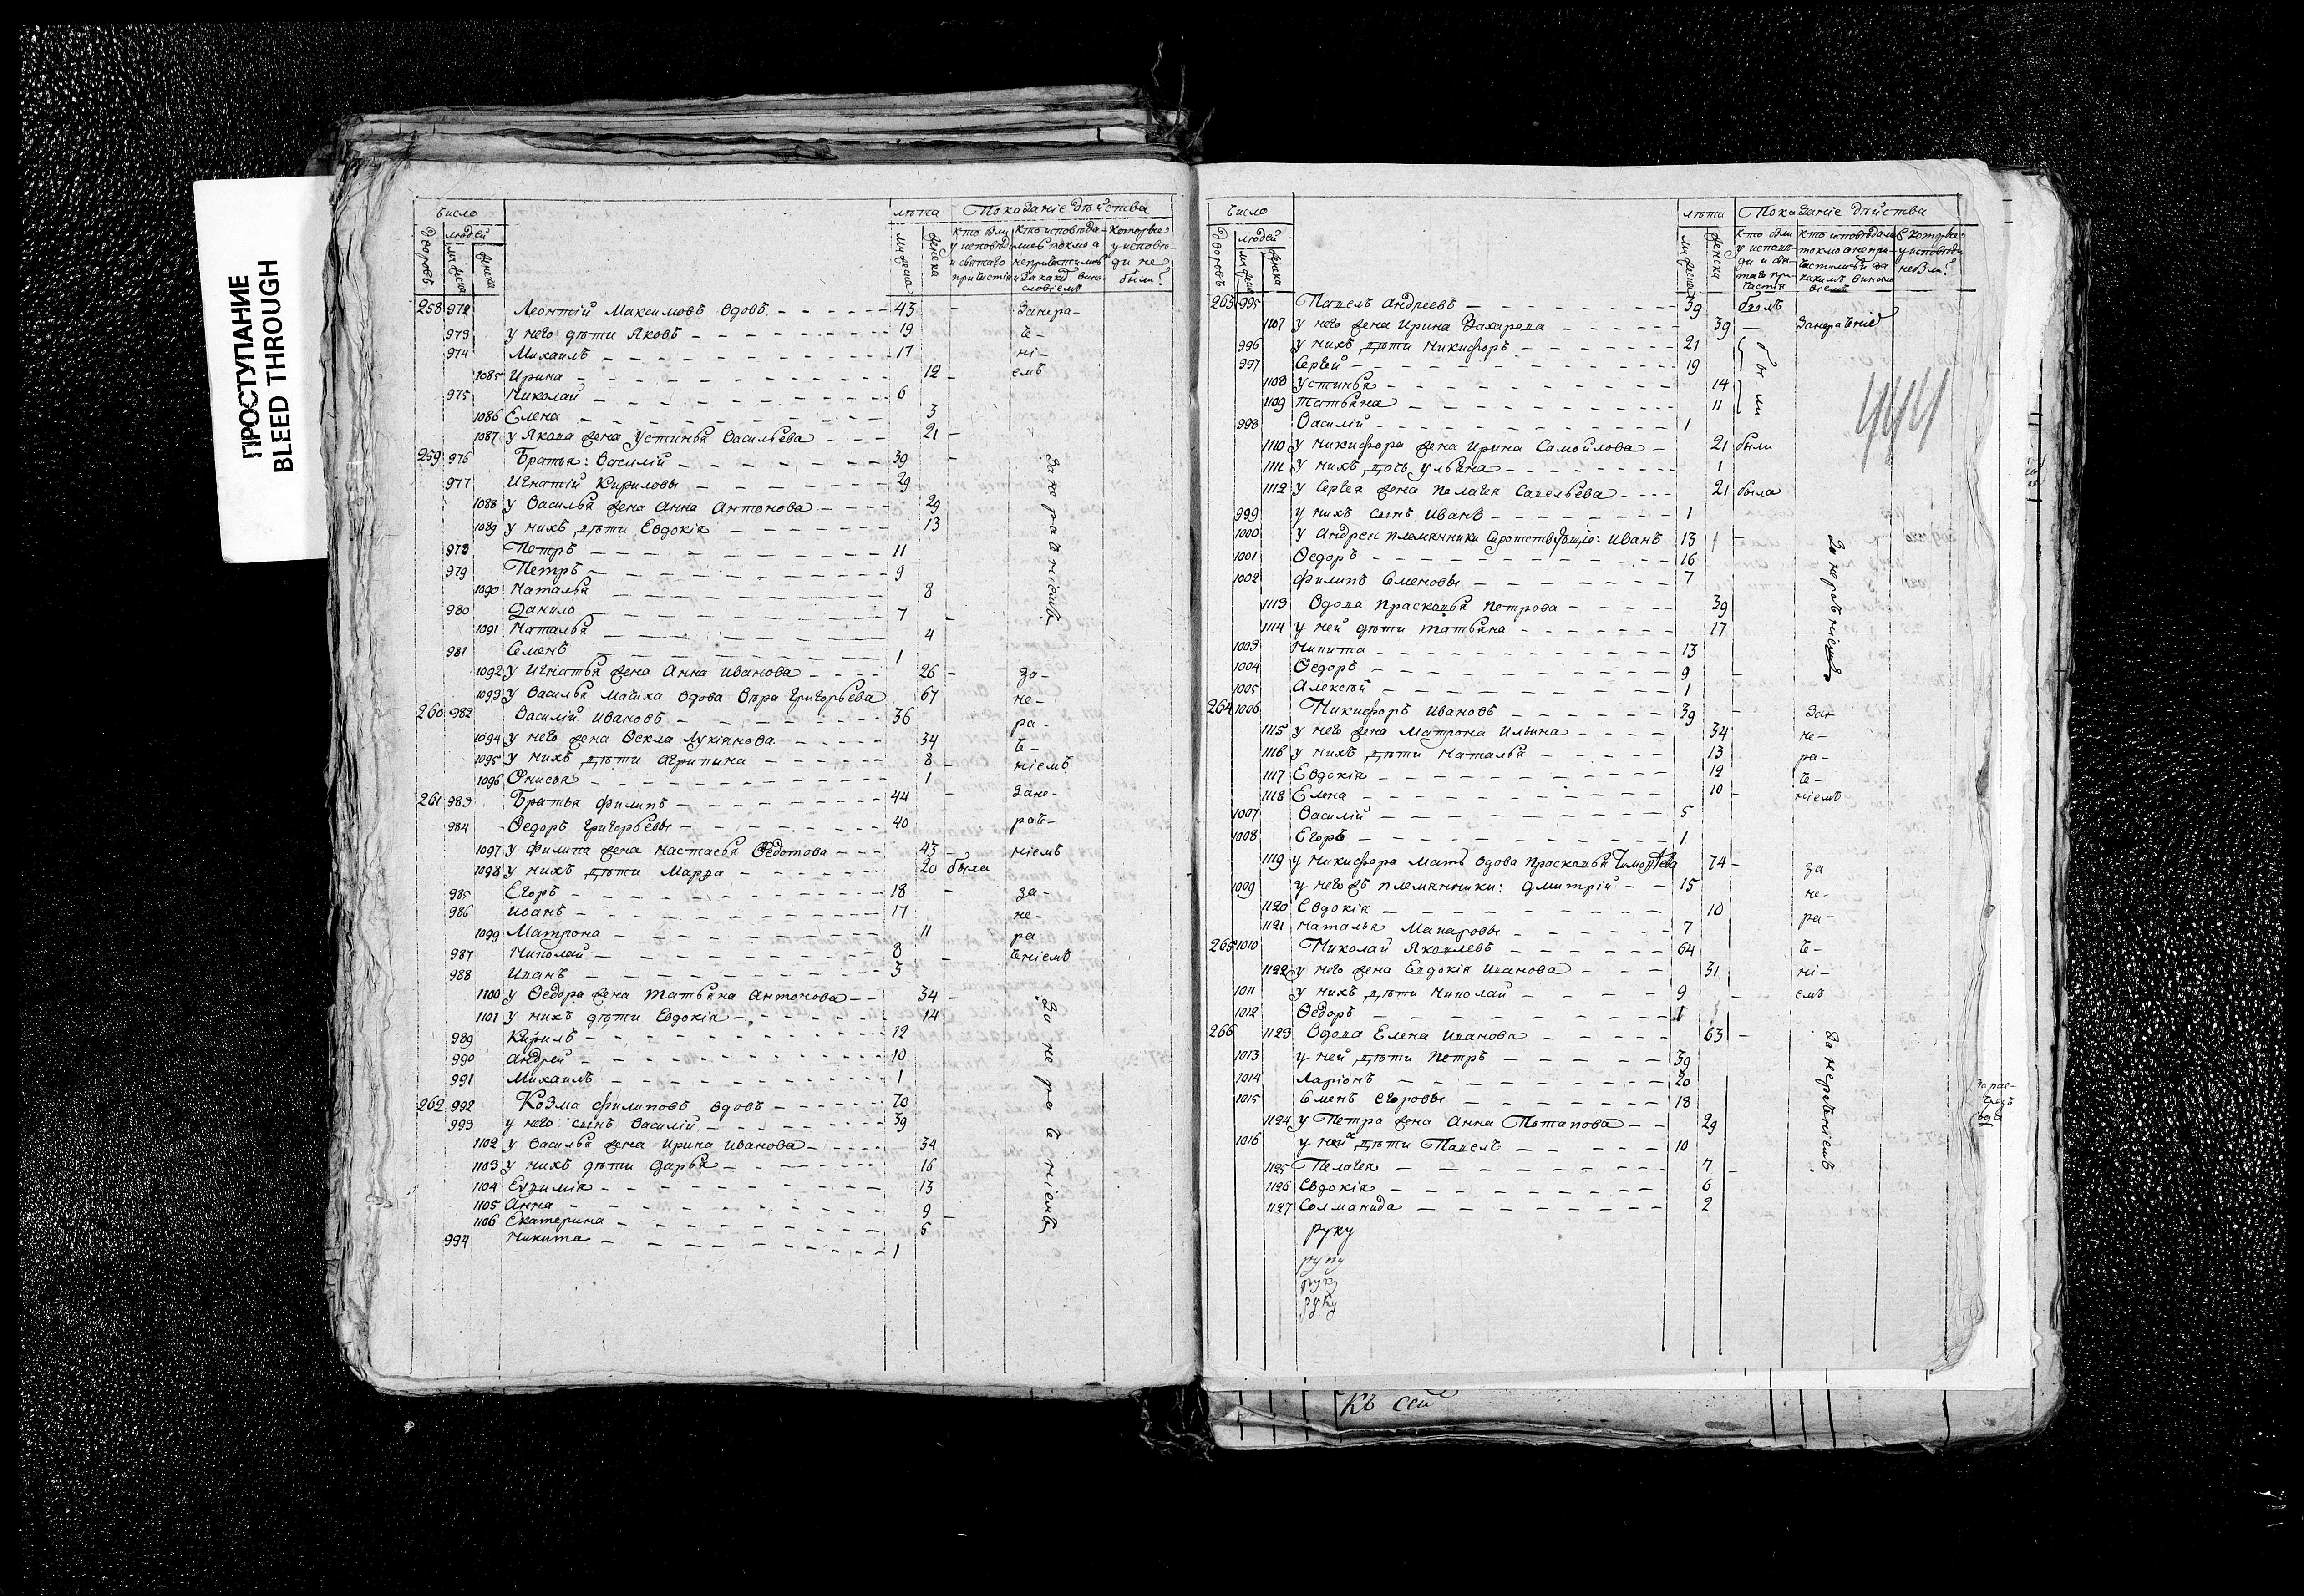 ПРОСТУПАНИЕ
BLEED THROUGH
число лѣта Показаніе дѣйства
Дворовъ людей мужеска женска мужеска женска
258 972 Леонтій Максимовъ вдовъ 43 Занера-
973 у него дѣти Яковъ 19 че-
974 Михаилъ 17 ні-
1085 Ирина 12 емъ
975 Николай 6
1086 Елена 3
1087 у Якова жена Устинья Васильева 21
259 976 Братья: Василій 39
977 Игнатій Кириловы 29
1088 у Василья жена Анна Антонова 29
1089 у нихъ дѣти Евдокія 13
978 Петръ 11
979 Петръ 9
1090 Наталья 8
980 Данило 7
1091 Наталья 4
981 Семенъ 1
1092 у Игнатья жена Анна Иванова 26 за-
1093 у Василья мачиха вдова Вѣра Григорьева 67 не-
260 982 Василій Ивановъ 36 ра-
1094 у него жена Ѳекла Лукіянова 34 че-
1095 у нихъ дѣти Агрипина 8 ніемъ
1096 Онисья 1
261 983 Братья Филипъ 44 Зане-
984 Ѳедоръ Григорьевы 40 раче-
1097 у Филипа жена Настасья Ѳедотова 43 ніемъ
1098 у нихъ дѣти Марѳа 20 была
985 Егоръ 18 за-
986 Иванъ 17 не-
1099 Матрона 11 ра
987 Николай 8 ченіемъ
988 Иванъ 3
1100 у Ѳедора жена Татьяна Антонова 34
1101 у нихъ дѣти Евдокія 14
989 Кирилъ 12
990 Андрей 10
991 Михаилъ 1
262 992 Козма Филиповъ вдовъ 70
993 у него сынъ Василій 39
1102 у Василья жена Ирина Иванова 34
1103 у нихъ дѣти Дарья 16
1104 Еуѳимія 13
1105 Анна 9
1106 Екатерина 5
994 Никита 1
Занераченіемъ
За не ра че ніемъ
число лѣта Показаніе дѣйства
Дворовъ людей мужеска женска мужеска женска
263 995 Павелъ Андреевъ 39 былъ
1107 у него жена Ирина Захарова 39 Занераченіе
996 у нихъ дѣти Никифоръ 21 бы
997 Сергей 19
1108 Устинья 14 ли
1109 Татьяна 11
998 Василій 1
1110 у Никифора жена Ирина Самойлова 21 были
1111 у нихъ дочь Ульяна 1
1112 у Сергея жена Пелагея Савельева 21 была
999 у нихъ сынъ Иванъ 1
1000 у Андреи племянники Иванъ 13
1001 Ѳедоръ 16
1002 Филипъ Семеновы 7
1113 Вдова Прасковья Петрова 39
1114 у ней дѣти Татьяна 17
1003 Никита 13
1004 Ѳедоръ 9
1005 Алексѣй 1
264 1006 Никифоръ Ивановъ 39 За-
1115 у него жена Матрона Ильина 34 не-
1116 у нихъ дѣти Наталья 13 ра-
1117 Евдокія 12 че-
1118 Елена 10 ніемъ
1007 Василій 5
1008 Егоръ 1
1119 у Никифора мать вдова Прасковья Тимофѣева 74 за
1009 у него жъ племянники: Дмитрій 15 не-
1120 Евдокія 10 ра-
1121 Наталья Макаровы 7
265 1010 Николай Яковлевъ 64 че-
1122 у него жена Евдокія Иванова 31 ні-
1011 у нихъ дѣти Николай 9 емъ
1012 Ѳедоръ 1
266 1123 Вдова Елена Иванова 63
1013 у ней дѣти Петръ 39
1014 Ларіонъ 20
1015 Семенъ Егоровы 18
1124 у Петра жена Анна Потапова 29
1016 у нихъ дѣти Павелъ 10
1125 Пелагея 7
1126 Евдокія 6
1127 Соломанида 2
руку
руку
руку
руку
Занераченіемъ
За нераченіемъ
444
Къ сей